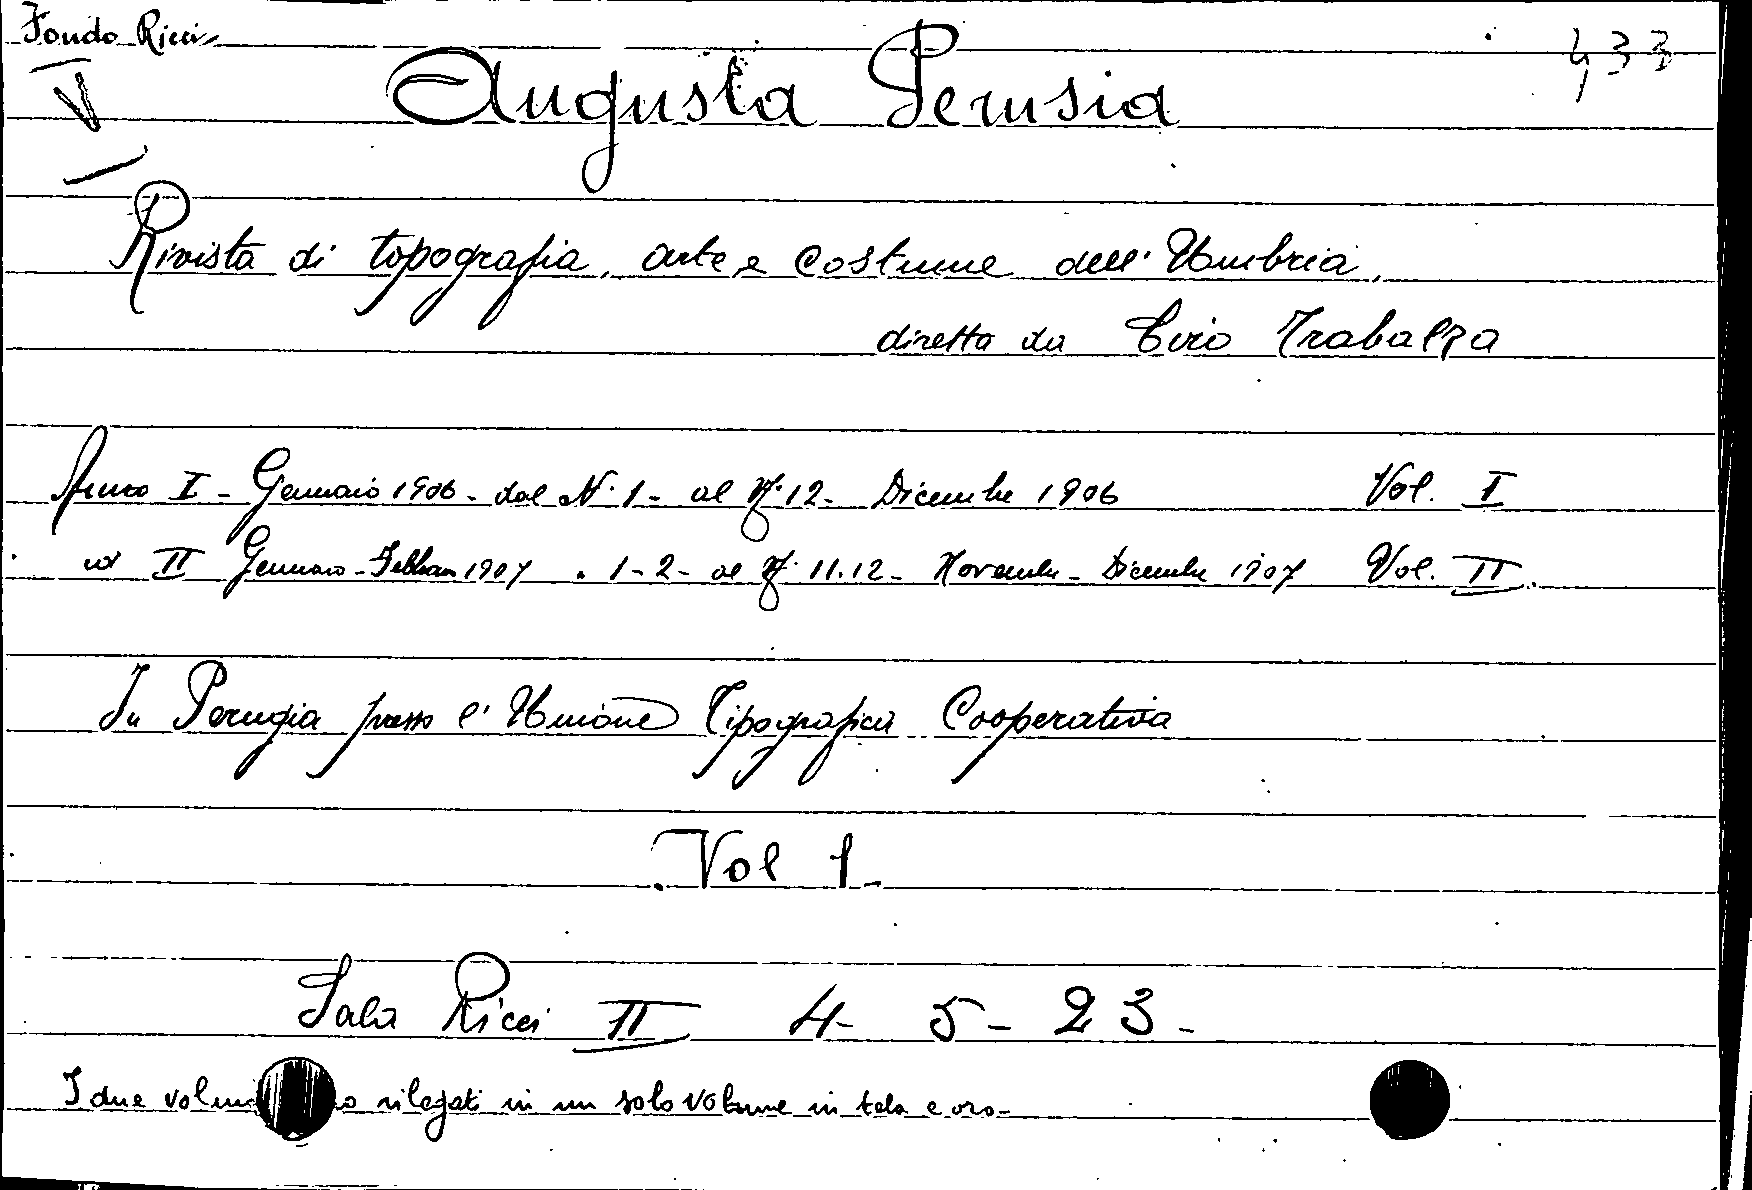 Fondo Ricci
433
Augusta Perusia
V
Rivista di topografia, arte e costume dell'Umbria,
diretta da Ciro Trabalza
Anno I - Gennaio 1906 - dal N. 1 - al N. 12 - Dicembre 1906 Vol. I
id II Gennaio - Febbraio 1907 . 1-2 - al N. 11.12 - Novembre - Dicembre 1907 Vol. II.
In Perugia presso l'Unione Tipografica Cooperativa
Vol 1.
Sala Ricci II 4 - 5 - 23 -
I due volumi rilegati in un solo volume in tela e oro -